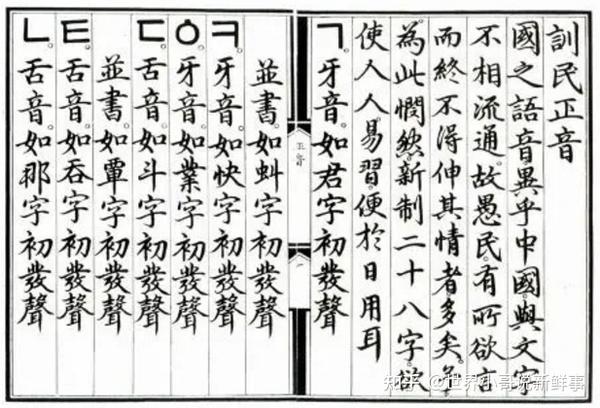 訓民正音
國之語音。異乎中國。與文字
不相流通。故愚民。有所欲言
而終不得伸其情者。多矣。予
為此憫然。新制二十八字。欲
使人人易習。便於日用耳
ㄱ。牙音。如君字初發聲
並書。如虯字初發聲
正音
一
ㅋ。牙音。如快字初發聲
ㆁ。牙音。如業字初發聲
ㄷ。舌音。如斗字初發聲
並書。如覃字初發聲
ㅌ。舌音。如吞字初發聲
ㄴ。舌音。如那字初發聲
知乎 @世界小哥说新鲜事